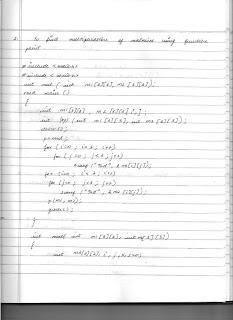 2. To find multiplication of matrices using function
print.
# include <
# include <
int mul ( int m1[3][3], m2 [3][3]);
void main ( )
{
int m1[3][3], m2[3][3]
int (*p) ( int m1 [3][3], int m2 [3][3]);
clrscr();
p = mul;
for ( i=0 ; i<3 ; i++)
for ( j=0 ; j<3 ; j++)
scanf ("%d", & m1[i][j]);
for ( i=0 ; i<3 ; i++)
for (j=0 ; j<3 ; j++)
scanf ("%d", & m2 [i][j]);
p (m1, m2);
getch();
}
int mul( int m1[3][3], int m2[3][3])
{
int [3][3], i, j,